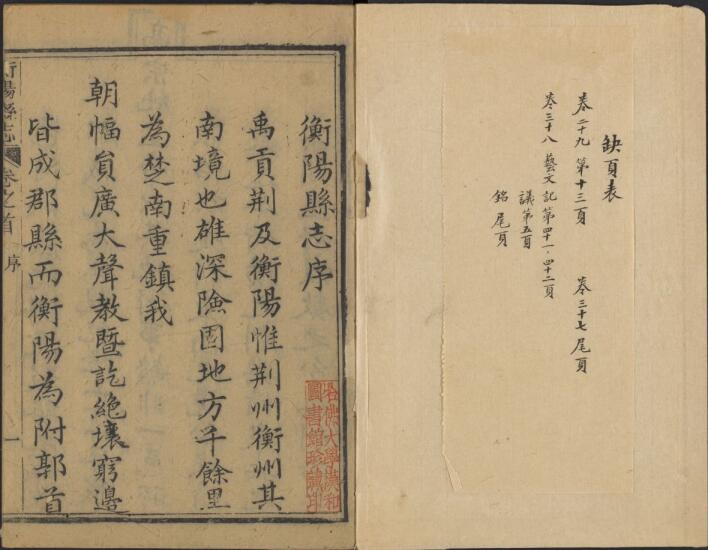 缺頁表
卷二十九 第十三頁 卷三十七 尾頁
卷三十八 藝文 記第四十一、四十二頁
議第五頁
銘 尾頁
衡陽縣志序
禹貢荆及衡陽惟荆州衡州其
南境也雄深險固地方千餘里
為楚南重鎮我
朝幅員廣大聲教暨訖絶壤窮邊
皆成郡縣而衡陽為附郭首
衡陽縣志 卷之首 序 一
哈佛大學漢和
圖書館珍藏印